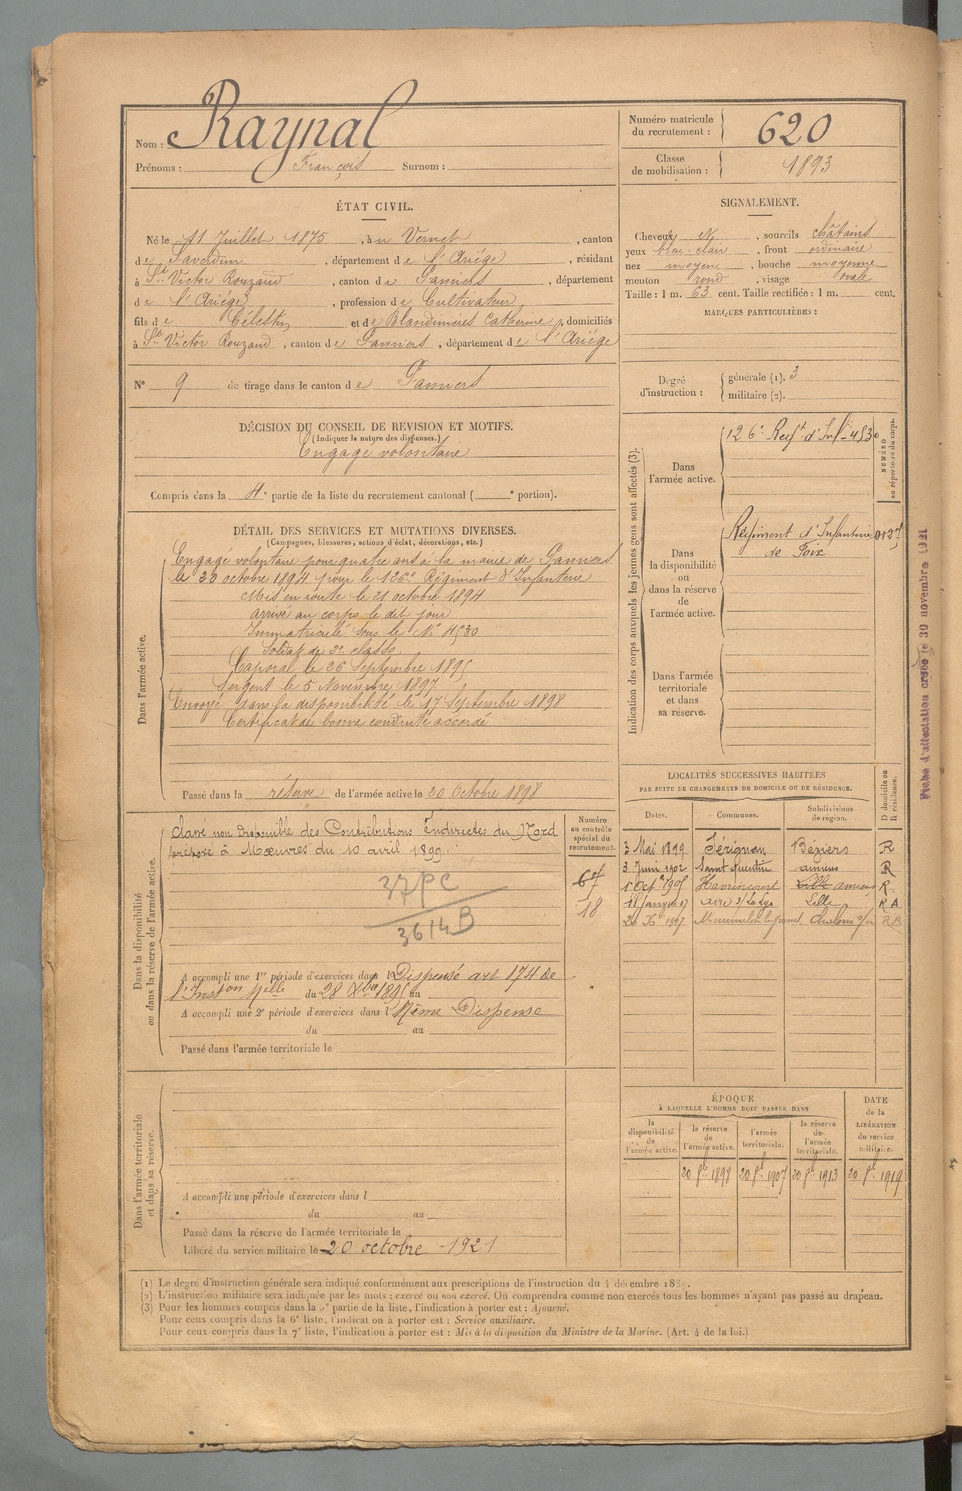 Nom : Raynal
Prénoms : François Surnom :
Numéro matricule
du recrutement : 620
Classe
de mobilisation : 1893
ÉTAT CIVIL.
Né le 11 Juillet 1875, à u Vernet, canton
d e Saverdun, département d e l'Ariège, résidant
à St Victor Rouzaud, canton d e Pamiers, département
d e l'Ariège, profession d e Cultivateur,
fils d e Célestin et d e Blandinières Catherine, domiciliés
à St Victor Rouzaud, canton d e Pamiers, département d e l'Ariège
N° 9 de tirage dans le canton d e Pamiers
SIGNALEMENT.
Cheveux N, sourcils châtains
yeux bleu-clair, front ordinaire
nez moyen, bouche moyenne
menton rond, visage ovale
Taille : 1 m. 63 cent. Taille rectifiée : 1 m. cent.
MARQUES PARTICULIÈRES :
Degré
d'instruction :
générale (1). 3
militaire (2).
DÉCISION DU CONSEIL DE REVISION ET MOTIFS.
(Indiquer la nature des dispenses.)
Engagé volontaire
Compris dans la 4e partie de la liste du recrutement cantonal ( e portion).
DÉTAIL DES SERVICES ET MUTATIONS DIVERSES.
(Campagnes, blessures, actions d'éclat, décorations, etc.)
Dans l'armée active.
Engagé volontaire pour quatre ans à la mairie de Pamiers
le 20 octobre 1894 pour le 126e Régiment d'Infanterie
Mis en route le 21 octobre 1894
arrivé au corps le dit jour
Immatriculé sous le N° 4530
Soldat de 2e classe
Caporal le 26 Septembre 1895
Sergent le 5 Novembre 1897
Envoyé dans la disponibilité le 17 Septembre 1898
Certificat de bonne conduite accordé
Passé dans la réserve de l'armée active le 20 Octobre 1898
Indication des corps auxquels les jeunes gens sont affectés (3).
Dans
l'armée active.
126e Regt d'Infie 4530
NUMÉRO
au répertoire du corps.
Dans
la disponibilité
ou
dans la réserve
de
l'armée active.
Régiment d'Infanterie
de Foix
Dans l'armée
territoriale
et dans
sa réserve.
Fiche d'attestation créée le 30 novembre 1921
LOCALITÉS SUCCESSIVES HABITÉES
PAR SUITE DE CHANGEMENTS DE DOMICILE OU DE RÉSIDENCE.
D domicile ou
R résidence.
Dates. Communes. Subdivisions
de région.
3 Mai 1899 Sérignan Béziers R
3 Juin 1902 Saint Quentin amiens R
1 Oct 1905 Havrincourt Lille amiens R.
aire s/ la Lys Lille R A
Mourmelon le grand Chalons s/m R A
Dans la disponibilité
ou dans la réserve de l'armée active.
Classé non Disponible des Contributions Indirectes du Nord
préposé à Mœuvres du 10 avril 1899.
Numéro
au contrôle
spécial du
recrutement.
67
18
37PC
3614B
A accompli une 1re période d'exercices dans l Dispensé art 174 de
l'Inston Melle du 28 Xbre 1895 au
A accompli une 2e période d'exercices dans l Même Dispense
du au
Passé dans l'armée territoriale le
ÉPOQUE
À LAQUELLE L'HOMME DOIT PASSER DANS
DATE
de la
LIBÉRATION
du service
militaire.
la
disponibilité
de
l'armée active.
la réserve
de
l'armée active.
l'armée
territoriale.
la réserve
de
l'armée
territoriale.
20 8bre 1898 20 8bre 1907 20 8bre 1913 20 8bre 1919
Dans l'armée territoriale
et dans sa réserve.
A accompli une période d'exercices dans l
du au
Passé dans la réserve de l'armée territoriale le
Libéré du service militaire le 20 octobre 1921
(1) Le degré d'instruction générale sera indiqué conformément aux prescriptions de l'instruction du 4 décembre 1889.
(2) L'instruction militaire sera indiquée par les mots : exercé ou non exercé. On comprendra comme non exercés tous les hommes n'ayant pas passé au drapeau.
(3) Pour les hommes compris dans la 5e partie de la liste, l'indication à porter est : Ajourné.
Pour ceux compris dans la 6e liste, l'indication à porter est : Service auxiliaire.
Pour ceux compris dans la 7e liste, l'indication à porter est : Mis à la disposition du Ministre de la Marine. (Art. 4 de la loi.)